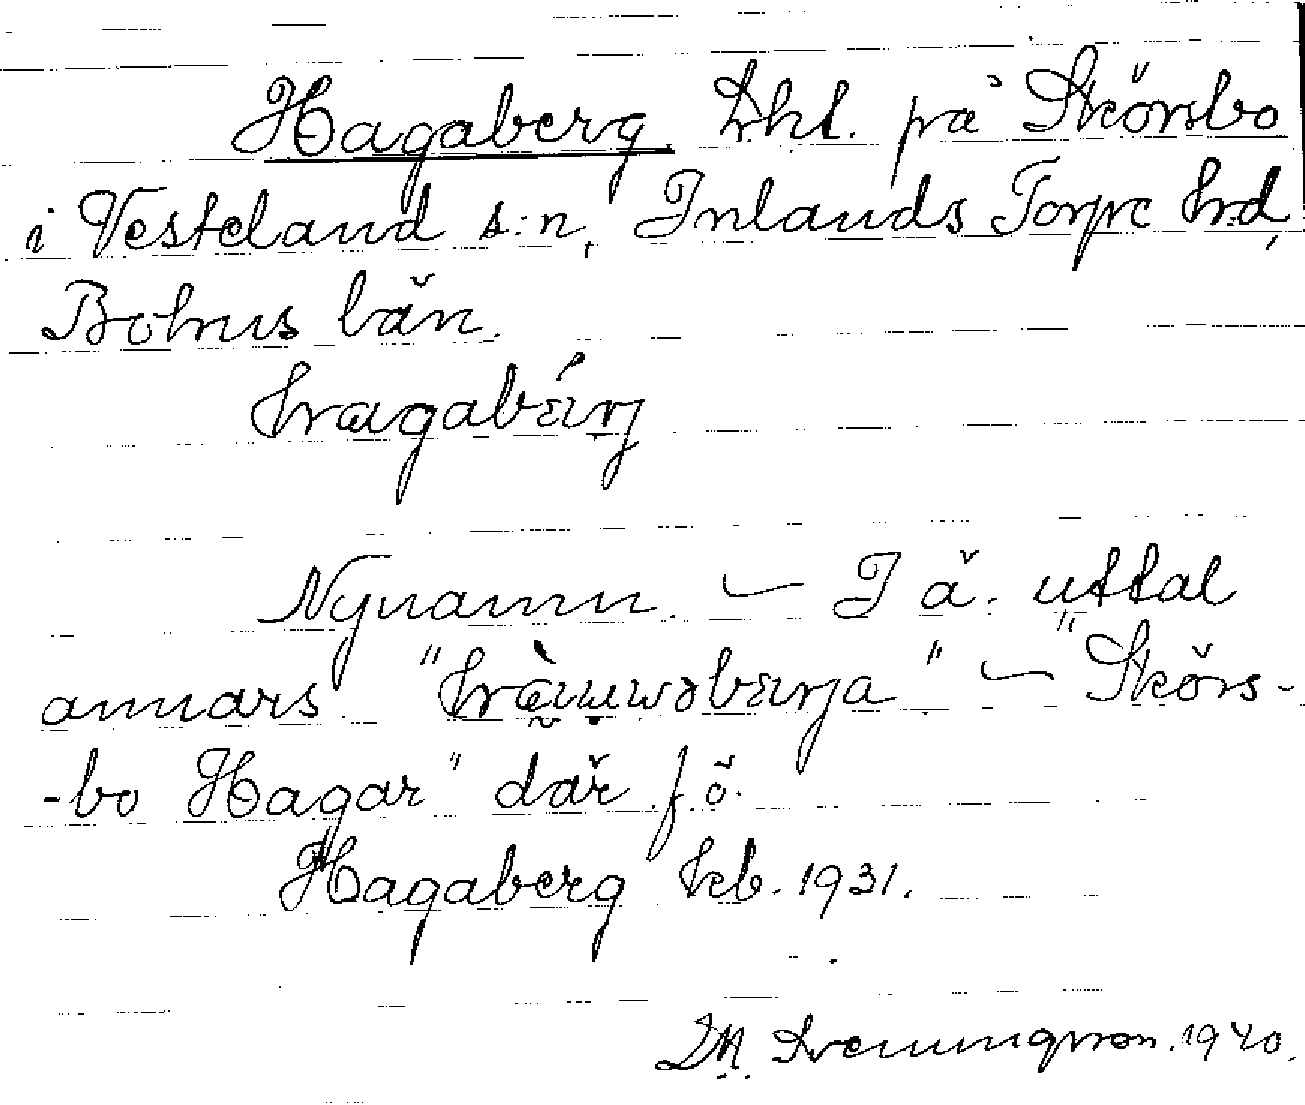 Hagaberg Lht. på Skörsbo
i Vesteland s:n, Inlands Torpe hrd,
Bohus län.
hagabærj
Nynamn. – I ä. uttal
annars " – "Skörs-
-bo Hagar" där f ö.
Hagaberg kb. 1931.
1940.